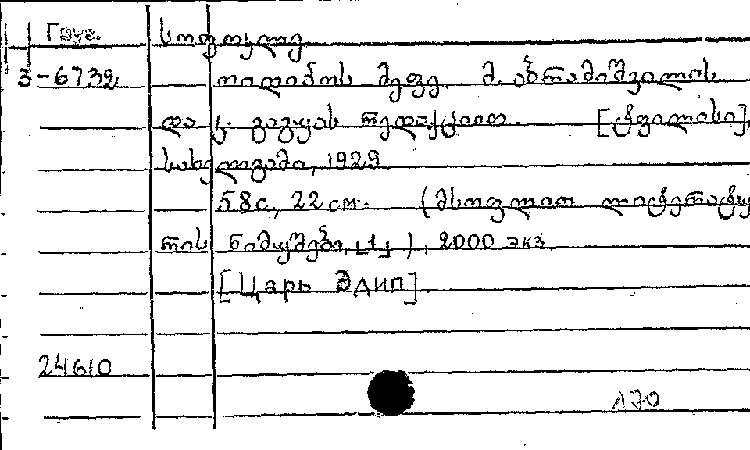 Груз. სოფოკლე
3-6732 ოიდიპოს მეფე. მ. აბრამიშვილის
და გ. გაგუას რედაქციით. [ტფილისი],
სახელგამი, 1929
58 с., 22 см. (მსოფლიო ლიტერატუ
რის ნიმუშები, [1]), 2000 экз
[Царь Эдип].
24610
170